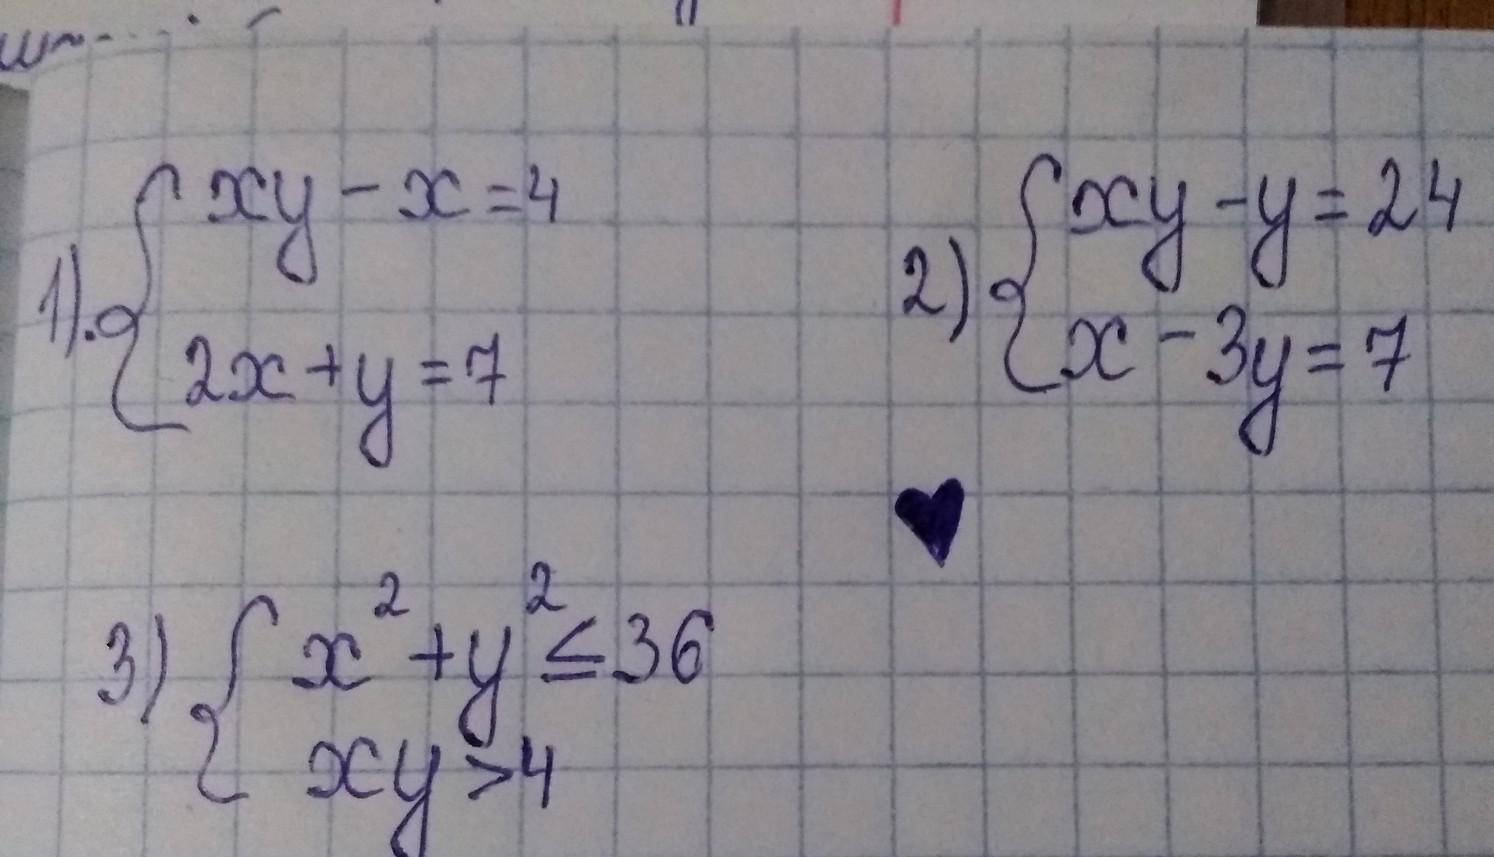 1). { xy - x = 4
2x + y = 7
2) { xy - y = 24
x - 3y = 7
3) { x² + y² ≤ 36
xy > 4